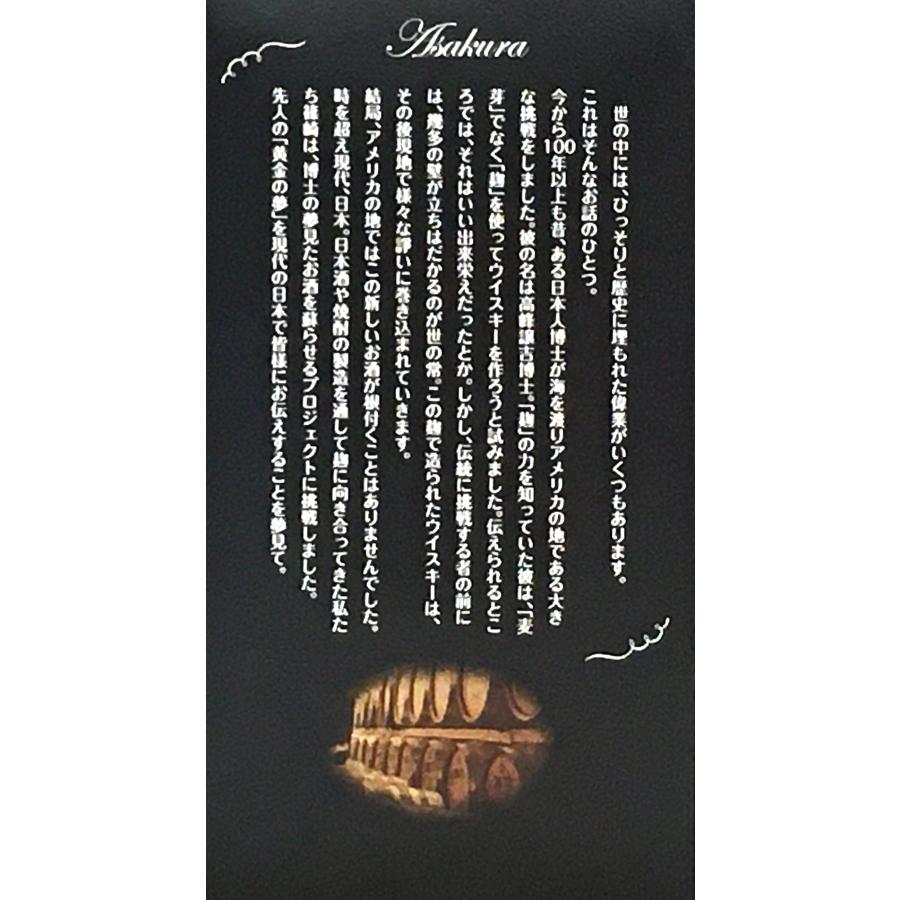 Asakura
世の中には、ひっそりと歴史に埋もれた偉業がいくつもあります。
これはそんなお話のひとつ。
今から100年以上も昔、ある日本人博士が海を渡りアメリカの地である大き
な挑戦をしました。彼の名は高峰譲吉博士。「麹」の力を知っていた彼は、「麦
芽」でなく「麹」を使ってウイスキーを作ろうと試みました。伝えられるとこ
ろでは、それはいい出来栄えだったとか。しかし、伝統に挑戦する者の前に
は、幾多の壁が立ちはだかるのが世の常。この麹で造られたウイスキーは、
その後現地で様々な諍いに巻き込まれていきます。
結局、アメリカの地ではこの新しいお酒が根付くことはありませんでした。
時を超え現代、日本。日本酒や焼酎の製造を通して麹に向き合ってきた私た
ち篠崎は、博士の夢見たお酒を蘇らせるプロジェクトに挑戦しました。
先人の「黄金の夢」を現代の日本で皆様にお伝えすることを夢見て。